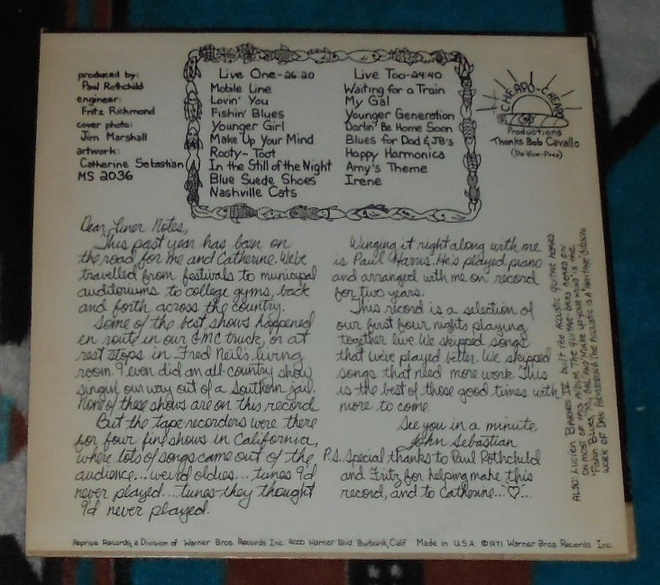 produced by:
Paul Rothchild
engineer:
Fritz Richmond
cover photo:
Jim Marshall
artwork:
Catherine Sebastian
MS 2036
Live One-26:20
Mobile Line
Lovin' You
Fishin' Blues
Younger Girl
Make Up Your Mind
Rooty-Toot
In the Still of the Night
Blue Suede Shoes
Nashville Cats
Live Too-24:40
Waiting for a Train
My Gal
Younger Generation
Darlin' Be Home Soon
Blues for Dad & JB's
Happy Harmonica
Amy's Theme
Irene
CHEAPO-CHEAPO
Productions
Thanks Bob Cavallo
(Da Vice-Prez)
Dear Liner Notes,
This past year has been on
the road for me and Catherine. We've
travelled from festivals to municipal
auditoriums to college gyms, back
and forth across the country.
Some of the best shows happened
en route in our GMC truck, or at
rest stops in Fred Neil's living
room. I even did an all-country show
singin' our way out of a Southern jail.
None of these shows are on this record.
But the tape recorders were there
for four fine shows in California,
where lots of songs came out of the
audience...weird oldies...tunes I'd
never played...tunes they thought
I'd never played.
Winging it right along with me
is Paul Harris. He's played piano
and arranged with me on record
for two years.
This record is a selection of
our first four nights playing
together live. We skipped songs
that we're played better. We skipped
songs that need more work. This
is the best of those good times with
more to come.
See you in a minute,
John Sebastian
P.S. Special thanks to Paul Rothchild
and Fritz for helping make this
record, and to Catherine...♡...
ALSO: LUCIEN BARNES IV built the acoustic guitar heard
on most of this album. The guitar bars heard on
'Fishin' Blues', 'My Gal', and 'Make up your mind' is the
work of Dan
Reprise Records, a Division of Warner Bros. Records Inc. 4000 Warner Blvd. Burbank, Calif. Made in U.S.A. ©1971 Warner Bros. Records Inc.